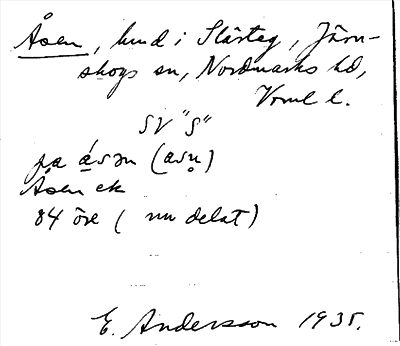 Åsen, hmd i Slårteg, Järn-
skogs sn, Nordmarks hd,
Vrml l.
SV "S"
pa ásən (asn̥)
Åsen ek
84 öre ( nu delat)
E. Andersson 1935.